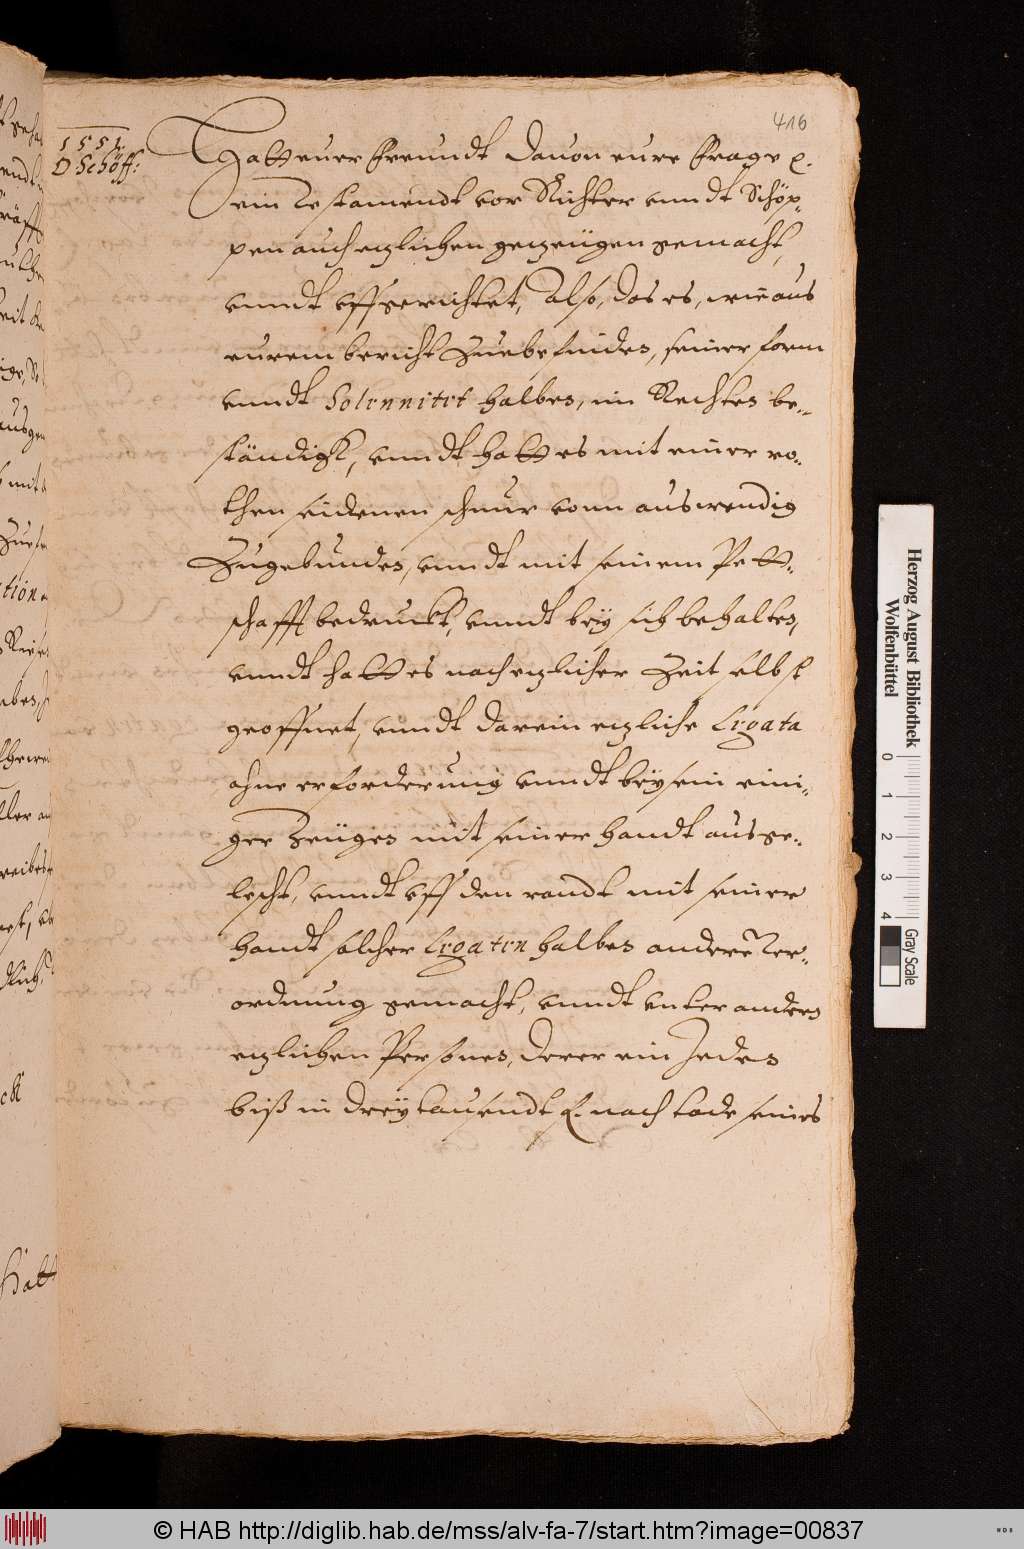 416
1551.
D Schöff:
Hatt euer freundt dauon eure frage p.
ein Testamendt vor Richter vnndt Schöp-
pen auch etzlichen gezeügen gemacht,
vnndt vffgerichtet, Also, das es, wie aus
eurem bericht Zuebefinden, seiner form
vnndt Solennitet halben, in Rechten be-
ständigk, vnndt hatt es mit einer ro-
then seidenen schnur vonn auswendig
Zugebunden, vnndt mit seinem Pett-
schafft bedruckt, vnndt beÿ sich behalten,
vnndt hatt es nach etzlicher Zeit selbst
geoffnet, vnndt darein etzliche Legata
ohne erforderung vnndt beÿsein eini-
ger Zeügen mit seiner handt ausge-
lescht, vnndt vff den randt mit seiner
handt solcher Legaten halben andere Ver-
ordnung gemacht, vnndt vnter andern
etzlichen Personen, derer ein Jeden
biß in dreÿ tausendt f. nach tode seines
Hatt
Herzog August Bibliothek
Wolfenbüttel
0 1 2 3 4
Gray Scale
© HAB http://diglib.hab.de/mss/alv-fa-7/start.htm?image=00837